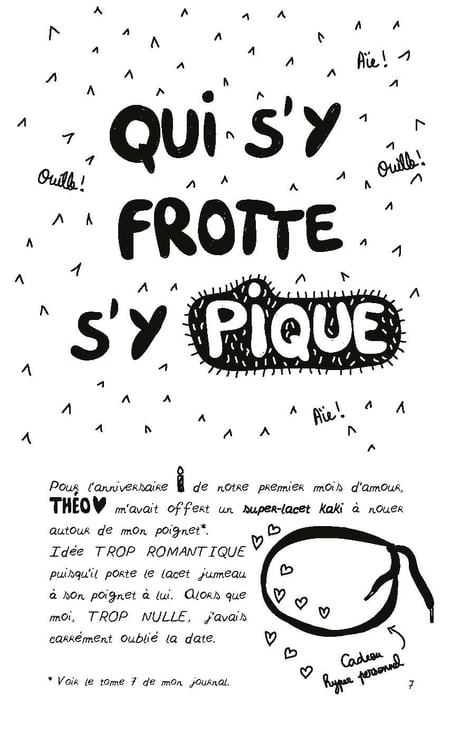 Aïe!
QUI S'Y
Ouille!
Ouille!
FROTTE
S'Y PIQUE
Aïe!
Pour l'anniversaire de notre premier mois d'amour,
THÉO m'avait offert un super-lacet kaki à nouer
autour de mon poignet*.
Idée TROP ROMANTIQUE
puisqu'il porte le lacet jumeau
à son poignet à lui. Alors que
moi, TROP NULLE, j'avais
carrément oublié la date.
Cadeau
hyper personnel
* Voir le tome 7 de mon journal.
7